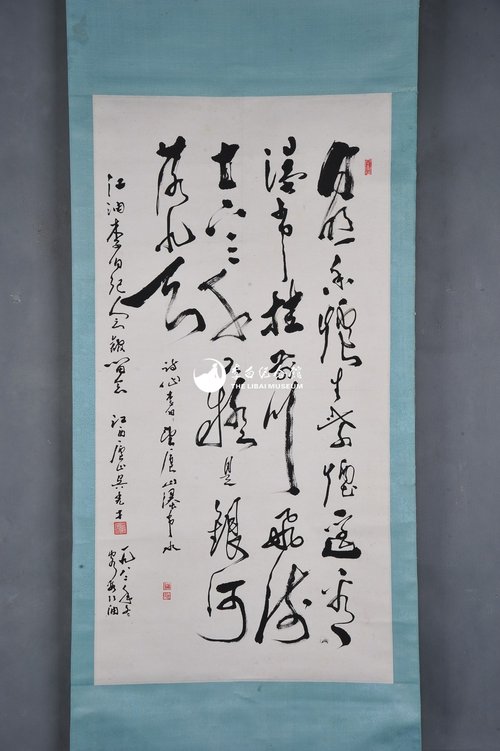 日照香爐生紫煙遙看
瀑布挂前川飛流
直下三千尺疑是銀河
落九天
詩仙李白望廬山瀑布水
江油李白纪念馆留念 江西廬山吴
一九八二年冬
江油
李白纪念馆
THE LIBAI MUSEUM